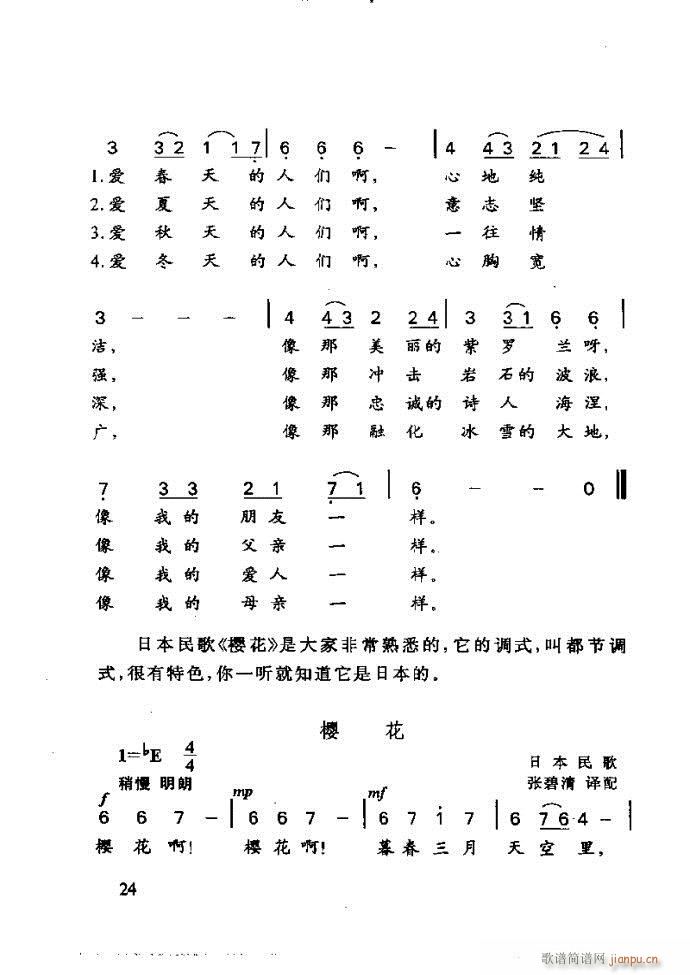 3 3 2 1 1 7 | 6 6 6 - | 4 4 3 2 1 2 4 |
1.爱 春 天 的 人 们 啊, 心 地 纯
2.爱 夏 天 的 人 们 啊, 意 志 坚
3.爱 秋 天 的 人 们 啊, 一 往 情
4.爱 冬 天 的 人 们 啊, 心 胸 宽
3 - - - | 4 4 3 2 2 4 | 3 3 1 6 6 |
洁, 像 那 美 丽的 紫 罗 兰 呀,
强, 像 那 冲 击 岩 石的 波 浪,
深, 像 那 忠 诚的 诗 人 海 涅,
广, 像 那 融 化 冰 雪的 大 地,
7 3 3 2 1 7 1 | 6 - - 0
像 我 的 朋 友 一 样。
像 我 的 父 亲 一 样。
像 我 的 爱 人 一 样。
像 我 的 母 亲 一 样。
日本民歌《樱花》是大家非常熟悉的,它的调式,叫都节调
式,很有特色,你一听就知道它是日本的。
樱 花
1=♭E 4/4
日 本 民 歌
稍慢 明朗
张碧清 译配
f mp mf
6 6 7 - | 6 6 7 - | 6 7 i 7 | 6 7 6 4 - |
樱 花 啊! 樱 花 啊! 暮 春 三 月 天 空 里,
24
歌谱简谱网 jianpu.cn